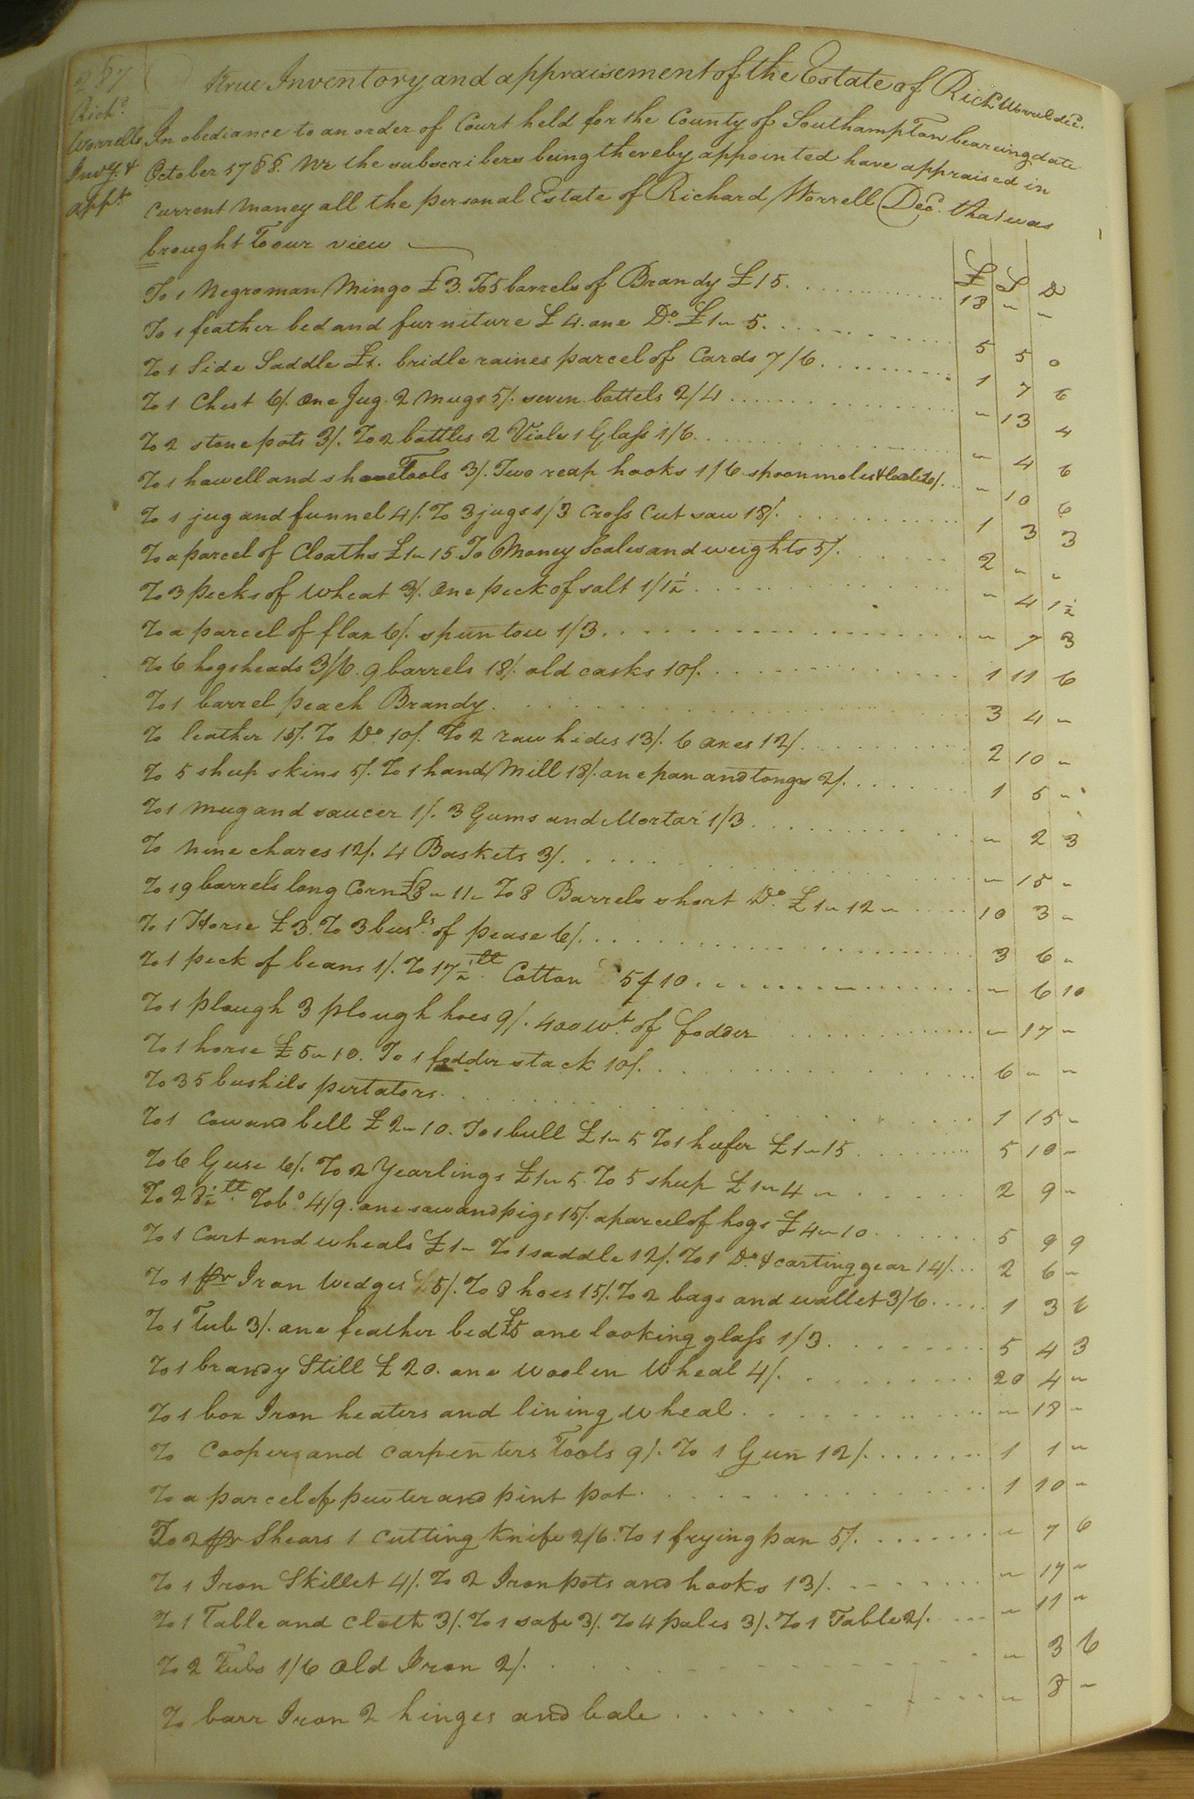 287
Richd.
Worrells
Invy. &
appt.
True Inventory and appraisement of the Estate of Richd. Worrel dec.
In obediance to an order of Court held for the County of Southampton bearing date
October 1788. We the subscribers being thereby appointed have appraised in
Current money all the personal Estate of Richard Worrell Dec. that was
brought to our view
£ S D
To 1 Negroman Mingo £3. To 5 barrels of Brandy £15. 18 " "
To 1 feather bed and furniture £4. one Do. £1 " 5. 5 5 0
To 1 Side Saddle £1. bridle raines parcel of Cards 7/6 1 7 6
To 1 Chest 6/. One Jug. 2 Mugs 5/. seven bottels 2/4 " 13 4
To 2 stone pots 3/. To 2 bottles 2 Viols 1 Glass 1/6 " 4 6
To 1 howell and shave Tools 3/. Two reap hooks 1/6 spoon moles & " 10 6
To 1 jug and funnel 4/. To 3 jugs 1/3 Cross Cut saw 18/. 1 3 3
To a parcel of Cloaths £1 " 15 To Money Scales and weights 5/. 2 " "
To 3 pecks of Wheat 3/. One peck of salt 1/1½ " 4 1½
To a parcel of flax 6/. spun tow 1/3 " 7 3
To 6 hogsheads 3/6. 9 barrels 18/. old casks 10/. 1 11 6
To 1 barrel peach Brandy. 3 4 "
To leather 15/. To Do. 10/. To 2 raw hides 13/. 6 axes 12/. 2 10 "
To 5 sheep skins 5/. To 1 hand Mill 18/. one pan and tongs 2/. 1 5 "
To 1 Mug and saucer 1/. 3 Gums and Mortar 1/3 " 2 3
To nine chares 12/. 4 Baskets 3/. " 15 "
To 19 barrels long Corn £8 " 11 " To 8 Barrels short Do. £1 " 12 " 10 3 "
To 1 Horse £3. To 3 busls. of pease 6/. 3 6 "
To 1 peck of beans 1/. To 17½ lb Cotton 5/10 " 6 10
To 1 plough 3 plough hoes 9/. 400 wt of fodder " 17 "
To 1 horse £5 " 10. To 1 fodder stack 10/. 6 " "
To 35 bushils pertators. 1 15 "
To 1 Cow and bell £2 " 10. To 1 bull £1 " 5 To 1 heefer £1 " 15 5 10 "
To 6 Geese 6/. To 2 Yearlings £1 " 5. To 5 sheep £1 " 4 " 2 9 "
To 28½ lb Tobo. 4/9. one sow and pigs 15/. a parcel of hogs £4 " 10 5 9 9
To 1 Cart and wheals £1 " To 1 saddle 12/. To 1 Do. & carting gear 14/. 2 6 "
To 1 pr Iron Wedges 5/. To 8 hoes 15/. To 2 bags and wallet 3/6 1 3 6
To 1 Tub 3/. one feather bed £5 one looking glass 1/3. 5 4 3
To 1 brandy Still £20. one Woolen Wheal 4/. 20 4 "
To 1 box Iron heaters and lining wheal. " 18 "
To Coopers and Carpenters Tools 9/. To 1 Gun 12/. 1 1 "
To a parcel of pewter and pint pot. 1 10 "
To 2 pr Shears 1 Cutting Knife 2/6. To 1 frying pan 5/. " 7 6
To 1 Iron Skillet 4/. To 2 Iron pots and hooks 13/. " 17 "
To 1 Table and Cloth 3/. To 1 safe 3/. To 4 pales 3/. To 1 Table 2/. " 11 "
To 2 Tubs 1/6 Old Iron 2/. " 3 6
To barr Iron 2 hinges and bale " 8 "